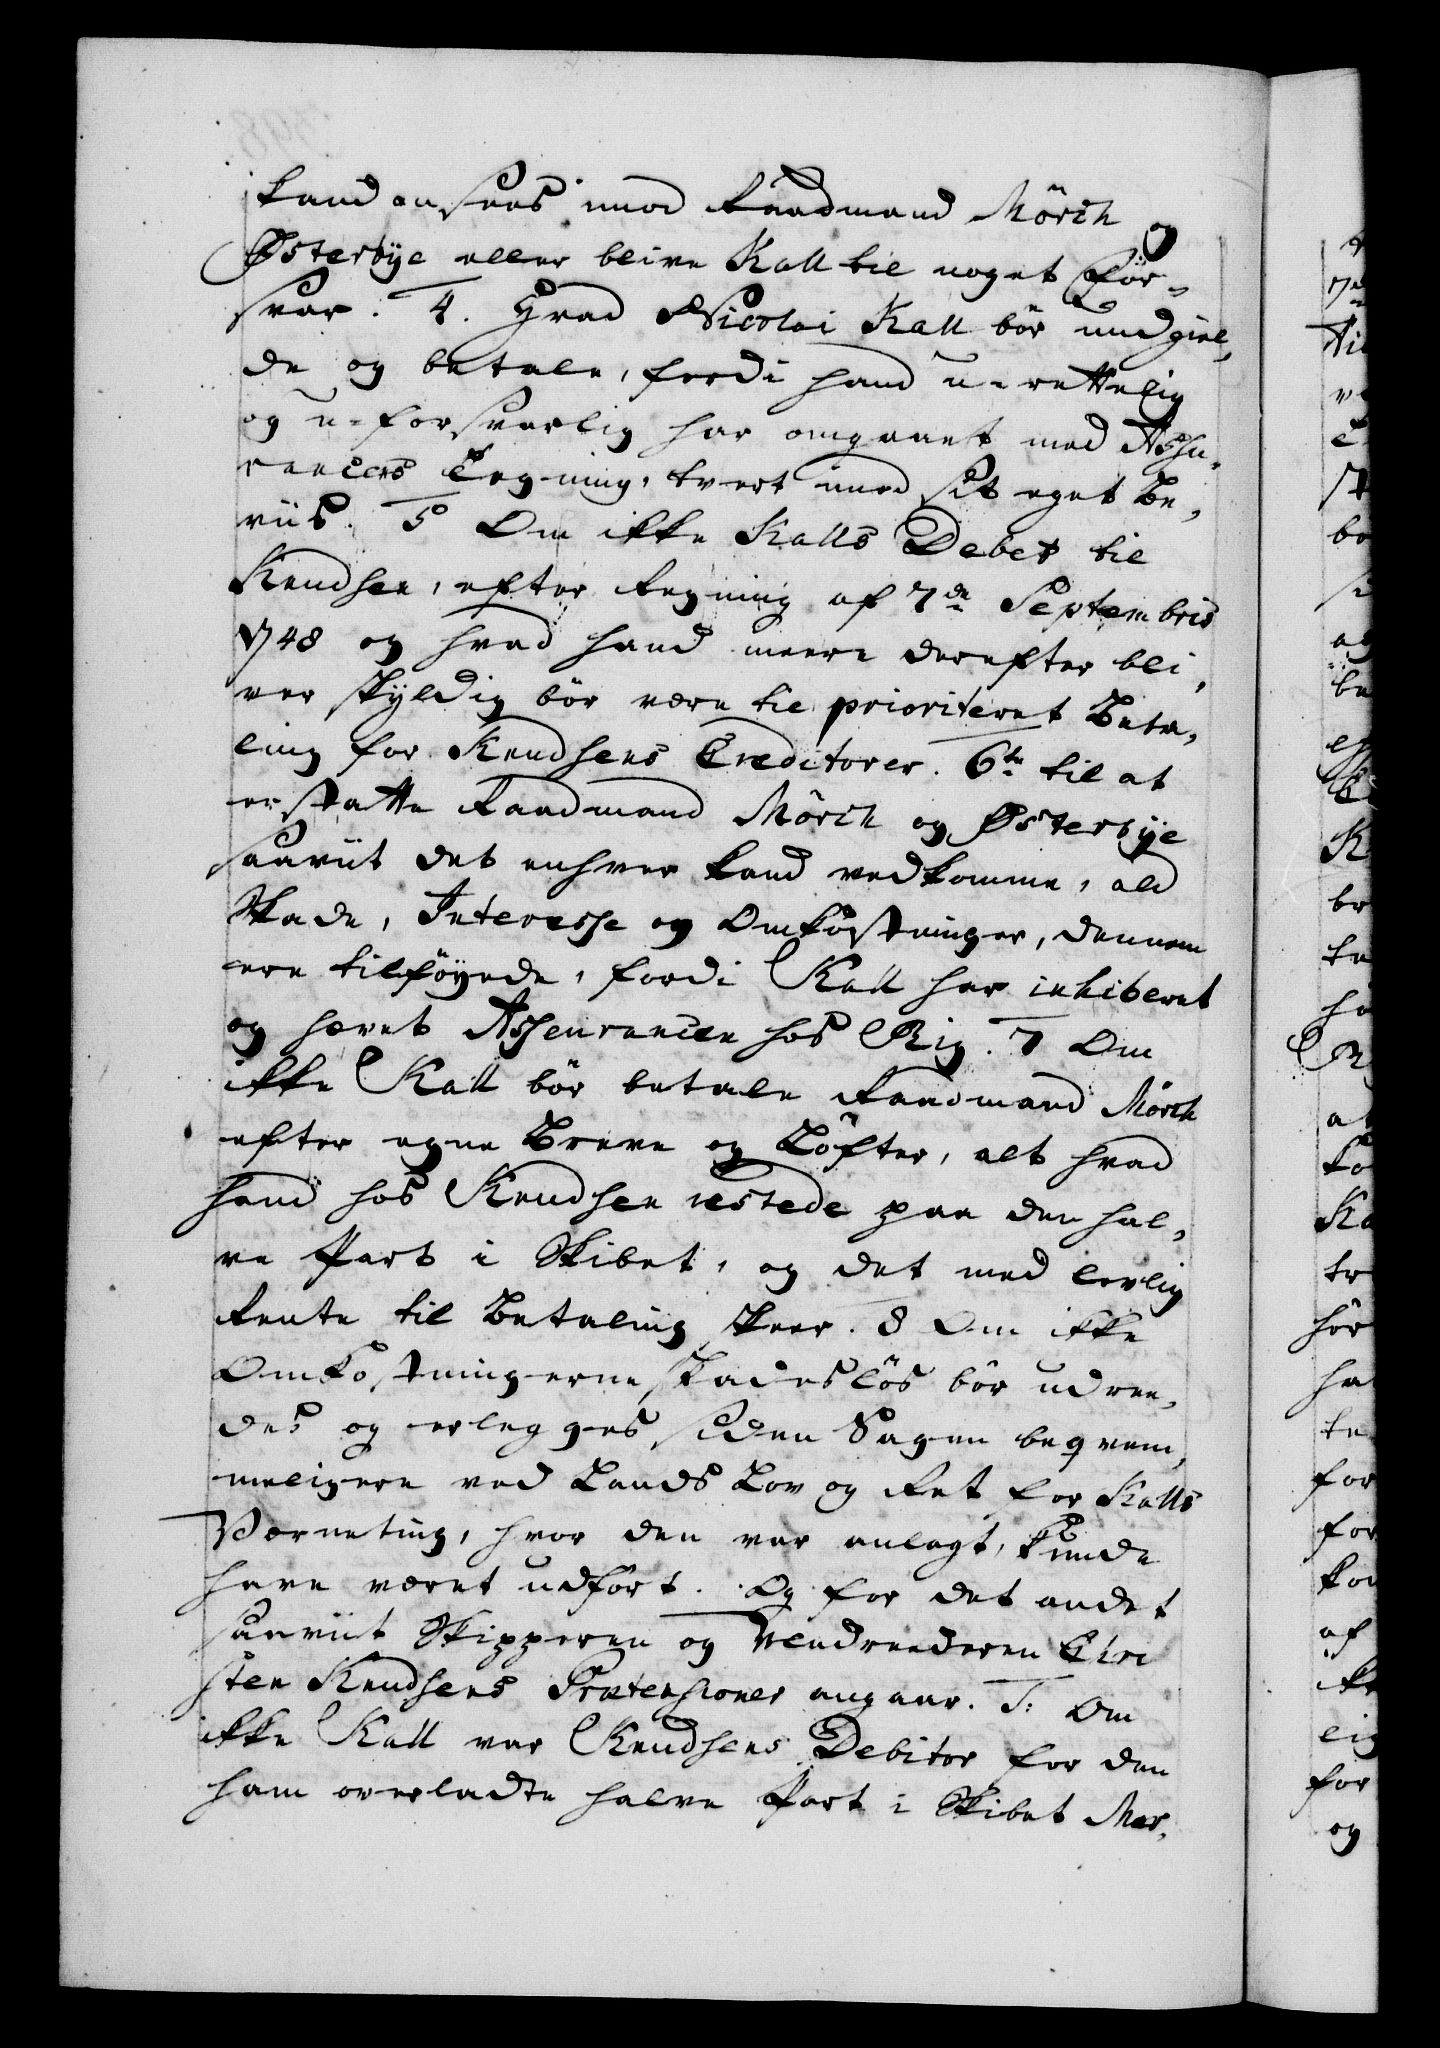 kand ansees imod Raadmand Mörch og
Østerbÿe eller blive Kall til noget for-
svar. 4. Hvad Nicolai Kall bör undgiel,
de og betale, fordi hand u-rettelig
og u-forsvarlig har omgaaet med Assu,
rancens Tegning, tvert imod sit eget Be,
viis. 5 Om ikke Kalls Debet til
Knudsen, efter Regning af 7de Septembris
1748 og hvad hand meere derefter bli,
ver skyldig bör være til prioriteret Beta,
ling for Knudsens Creditorer. 6te til at
erstatte Raadmand Mörch og Østerbÿe
saaviit det enhver kand vedkomme, ald
Skade, Interesse og Omkostninger, dennem
ere tilföyede, fordi Kall har inhiberet
og hævet Assenrancen hos Rig. 7 Om
ikke Kall bör betale Raadmand Mörch
efter egne Breve og Löfter, alt hvad
hand hos Knudsen restede paa den hal,
ve Part i Skibet, og det med lovlig
Rente til Betaling skeer. 8 Om ikke
Omkostningerne skadeslös bör udree,
des og erlegges siden Sagen beqvem,
meligere ved Lands Lov og Ret for Kalls
Værneting, hvor den var anlagt, kunde
have været udfört. Og for det andet
saaviit Skipperen og Medreederen Chri
sten Knudsens Prætensioner angaar. 1: Om
ikke Kall var Knudsens Debitor for den
ham overladte halve Part i Skibet Mar,